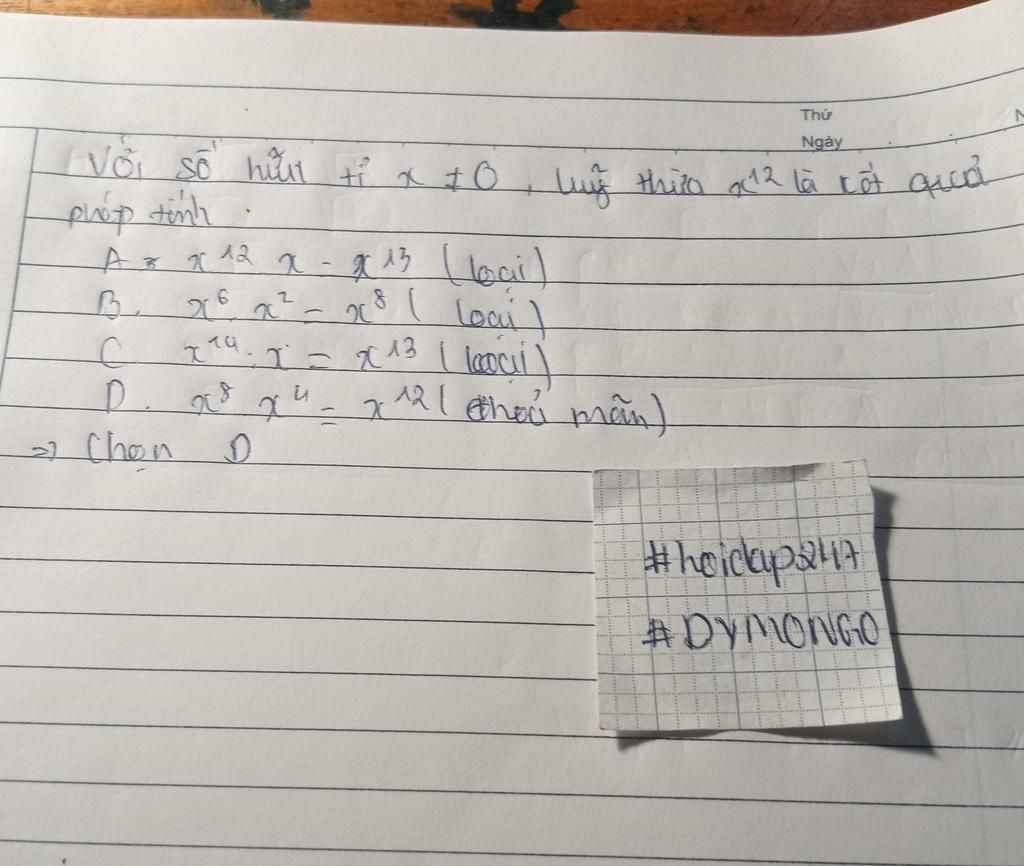 Thứ
Ngày
N
Với số hữu tỉ x ≠ 0, luỹ thừa x¹² là kết quả
phép tính.
A. x¹² x = x¹³ (loại)
B. x⁶ x² = x⁸ ( loại )
C x¹⁴ . x = x¹³ (loại)
D. x⁸ x⁴ = x¹² ( thoả mãn)
=> Chọn D
#hoidap247
#DYMONGO